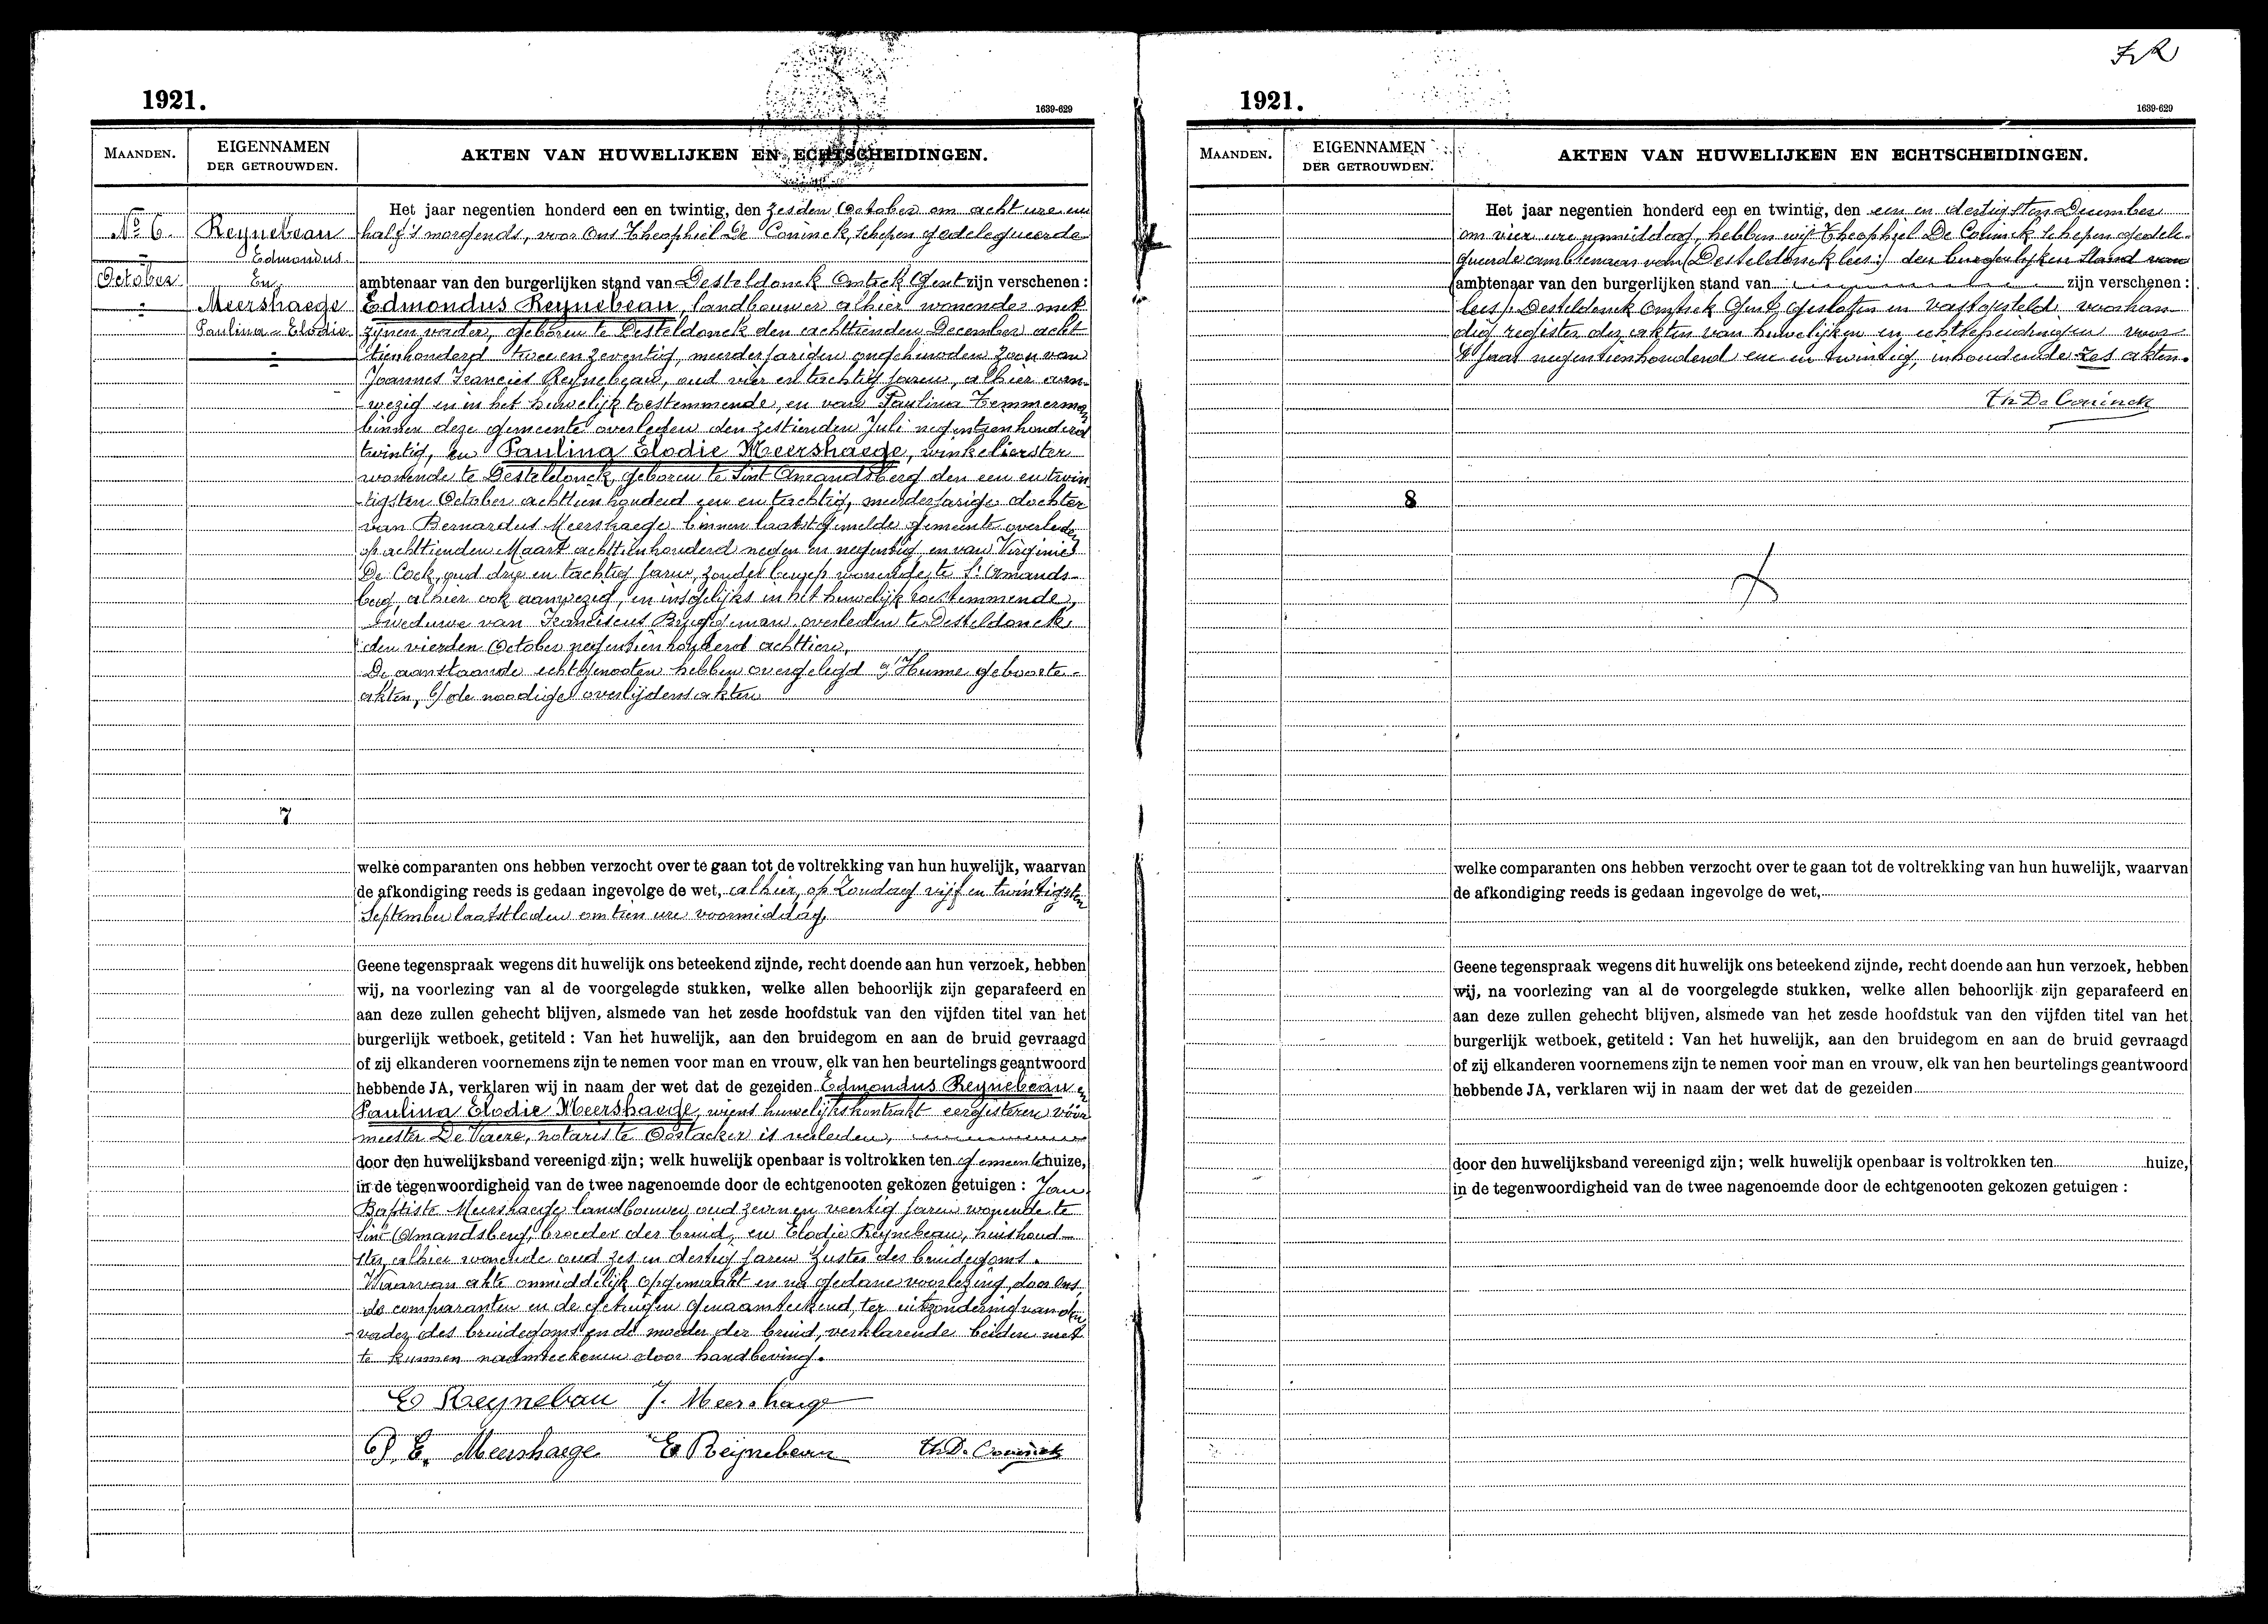 1921.
1639-629
MAANDEN.
EIGENNAMEN
DER GETROUWDEN.
AKTEN VAN HUWELIJKEN EN ECHTSCHEIDINGEN.
No 6.
October
Reynebeau
Edmondus
En
Meershaege
Paulina-Elodie
Het jaar negentien honderd een en twintig, den zesden October om acht ure en
half 's morgends, voor Ons Theophiel De Coninck, schepen gedelegueerde
ambtenaar van den burgerlijken stand van Desteldonck Omtrek Gent zijn verschenen :
Edmondus Reynebeau, landbouwer alhier wonende met
zijnen vader, geboren te Desteldonck den achttienden December acht
tienhonderd twee en zeventig, meerderjarigen ongehuwden zoon van
Joannes Francies Reynebeau, oud vier en tachtig jaren, alhier aan-
wezig en in het huwelijk toestemmende, en van Paulina Temmerman
binnen deze gemeente overleden den zestienden Juli negentienhonderd
twintig, en Paulina Elodie Meershaege, winkelierster
wonende te Desteldonck, geboren te Sint Amandsberg den een en twin
tigsten October achttienhonderd een en tachtig, meerderjarige dochter
van Bernardus Meershaege binnen laatstgemelde gemeente overleden
op achttienden Maart achttienhonderd negen en negentig, en van Virginie
De Cock, oud drie en tachtig jaren, zonder beroep wonende te St Amands-
berg, alhier ook aanwezig, en insgelijks in het huwelijk toestemmende,
weduwe van Franciscus Bruggeman overleden te Desteldonck
den vierden October negentienhonderd achttien,
De aanstaande echtgenooten hebben overgelegd a/ Hunne geboorte-
akten, b/ de noodige overlijdensakten
7
welke comparanten ons hebben verzocht over te gaan tot de voltrekking van hun huwelijk, waarvan
de afkondiging reeds is gedaan ingevolge de wet, alhier op Zondag vijf en twintigsten
September laatstleden om tien ure voormiddag,
Geene tegenspraak wegens dit huwelijk ons beteekend zijnde, recht doende aan hun verzoek, hebben
wij, na voorlezing van al de voorgelegde stukken, welke allen behoorlijk zijn geparafeerd en
aan deze zullen gehecht blijven, alsmede van het zesde hoofdstuk van den vijfden titel van het
burgerlijk wetboek, getiteld : Van het huwelijk, aan den bruidegom en aan de bruid gevraagd
of zij elkanderen voornemens zijn te nemen voor man en vrouw, elk van hen beurtelings geantwoord
hebbende JA, verklaren wij in naam der wet dat de gezeiden Edmondus Reynebeau en
Paulina Elodie Meershaege, wiens huwelijkskontrakt eergisteren vóór
meester De Vaere, notaris te Oostacker is verleden,
door den huwelijksband vereenigd zijn; welk huwelijk openbaar is voltrokken ten gemeentehuize,
in de tegenwoordigheid van de twee nagenoemde door de echtgenooten gekozen getuigen : Jan
Baptiste Meershaege landbouwer oud zeven en veertig jaren wonende te
Sint Amandsberg, broeder der bruid, en Elodie Reynebeau, huishoud-
ster, alhier wonende oud zes en dertig jaren zuster des bruidegoms.
Waarvan akte onmiddelijk opgemaakt en na gedane voorlezing, door Ons,
de comparanten en de getuigen genaamteekend, ter uitzondering van den
vader des bruidegoms en de moeder der bruid, verklarende beiden niet
te kunnen naamteekenen door handbeving.
E Reynebau J. Meershaege
P. E. Meershaege E Reijnebeau Th De Coninck
1921.
1639-629
MAANDEN.
EIGENNAMEN
DER GETROUWDEN.
AKTEN VAN HUWELIJKEN EN ECHTSCHEIDINGEN.
Het jaar negentien honderd een en twintig, den een en dertigsten December
om vier ure namiddag, hebben wij Theophiel De Coninck schepen gedele-
gueerde ambtenaar van (Desteldonck lees:) den burgerlijken stand van
ambtenaar van den burgerlijken stand van zijn verschenen :
lees/: Desteldonck Omtrek Gent gesloten en vastgesteld voorhan-
dig register der akten van huwelijken en echtscheidingen voor
't jaar negentienhonderd een en twintig, inhoudende zes akten.
Th De Coninck
8
welke comparanten ons hebben verzocht over te gaan tot de voltrekking van hun huwelijk, waarvan
de afkondiging reeds is gedaan ingevolge de wet,
Geene tegenspraak wegens dit huwelijk ons beteekend zijnde, recht doende aan hun verzoek, hebben
wij, na voorlezing van al de voorgelegde stukken, welke allen behoorlijk zijn geparafeerd en
aan deze zullen gehecht blijven, alsmede van het zesde hoofdstuk van den vijfden titel van het
burgerlijk wetboek, getiteld : Van het huwelijk, aan den bruidegom en aan de bruid gevraagd
of zij elkanderen voornemens zijn te nemen voor man en vrouw, elk van hen beurtelings geantwoord
hebbende JA, verklaren wij in naam der wet dat de gezeiden
door den huwelijksband vereenigd zijn; welk huwelijk openbaar is voltrokken ten huize,
in de tegenwoordigheid van de twee nagenoemde door de echtgenooten gekozen getuigen :